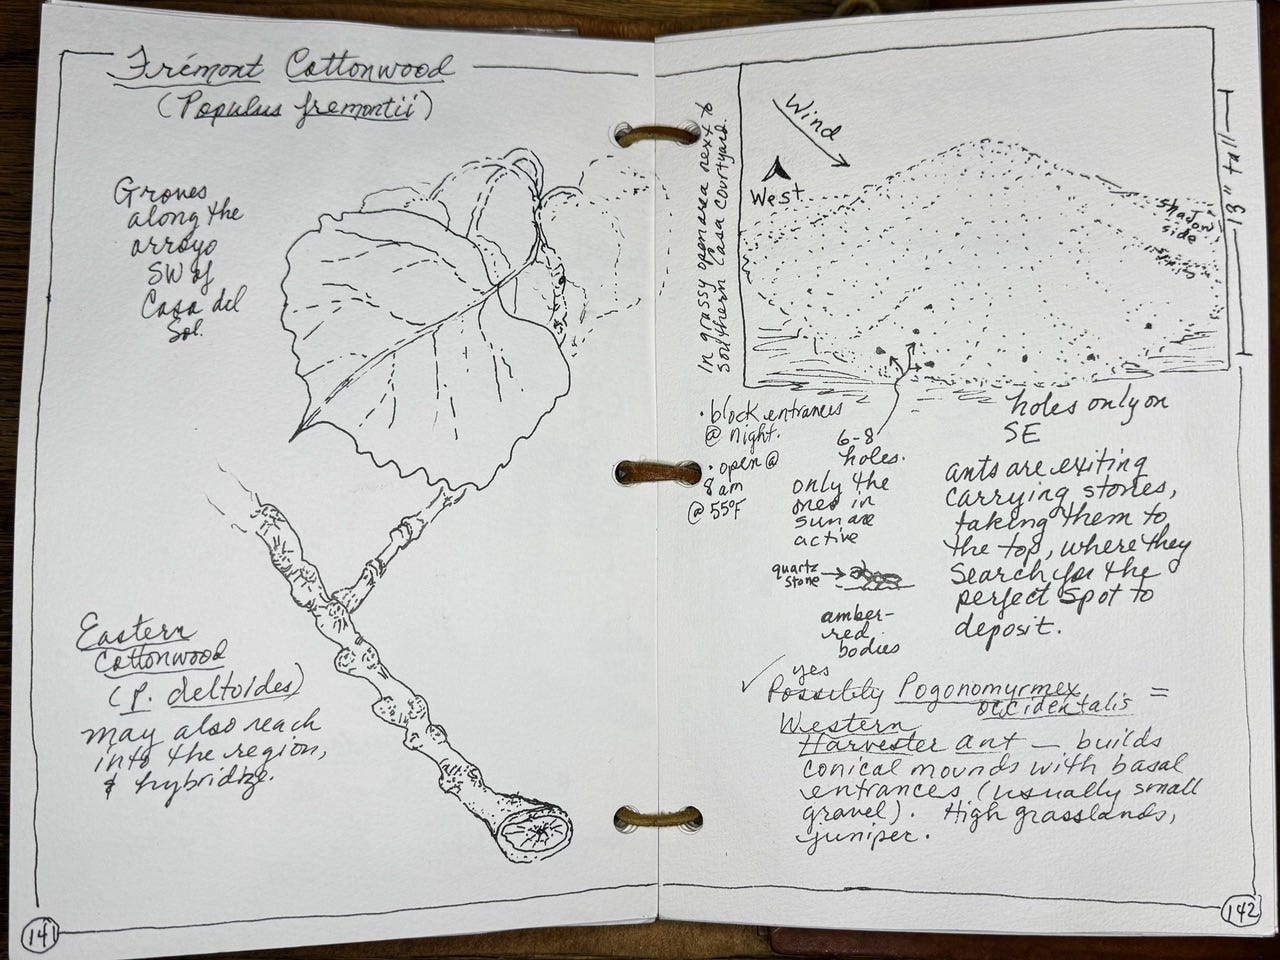 Frémont Cottonwood
(Populus fremontii)
Groves
along the
arroyo
SW of
Casa del
Sol.
Eastern
Cottonwood
(P. deltoides)
may also reach
into the region,
& hybridize.
141
In grassy open area next to
Southern Casa Courtyard.
Wind
West
shadow
side
13" tall
• block entrances
@ night.
• open @
8 am
@ 55°F
6-8
holes.
only the
ones in
sun are
active
quartz
stone
amber-
red
bodies
holes only on
SE
ants are exiting
carrying stones,
taking them to
the top, where they
search for the
perfect spot to
deposit.
✓ yes
Possibly Pogonomyrmex
occidentalis =
Western
Harvester ant — builds
conical mounds with basal
entrances (usually small
gravel). High grasslands,
juniper.
142